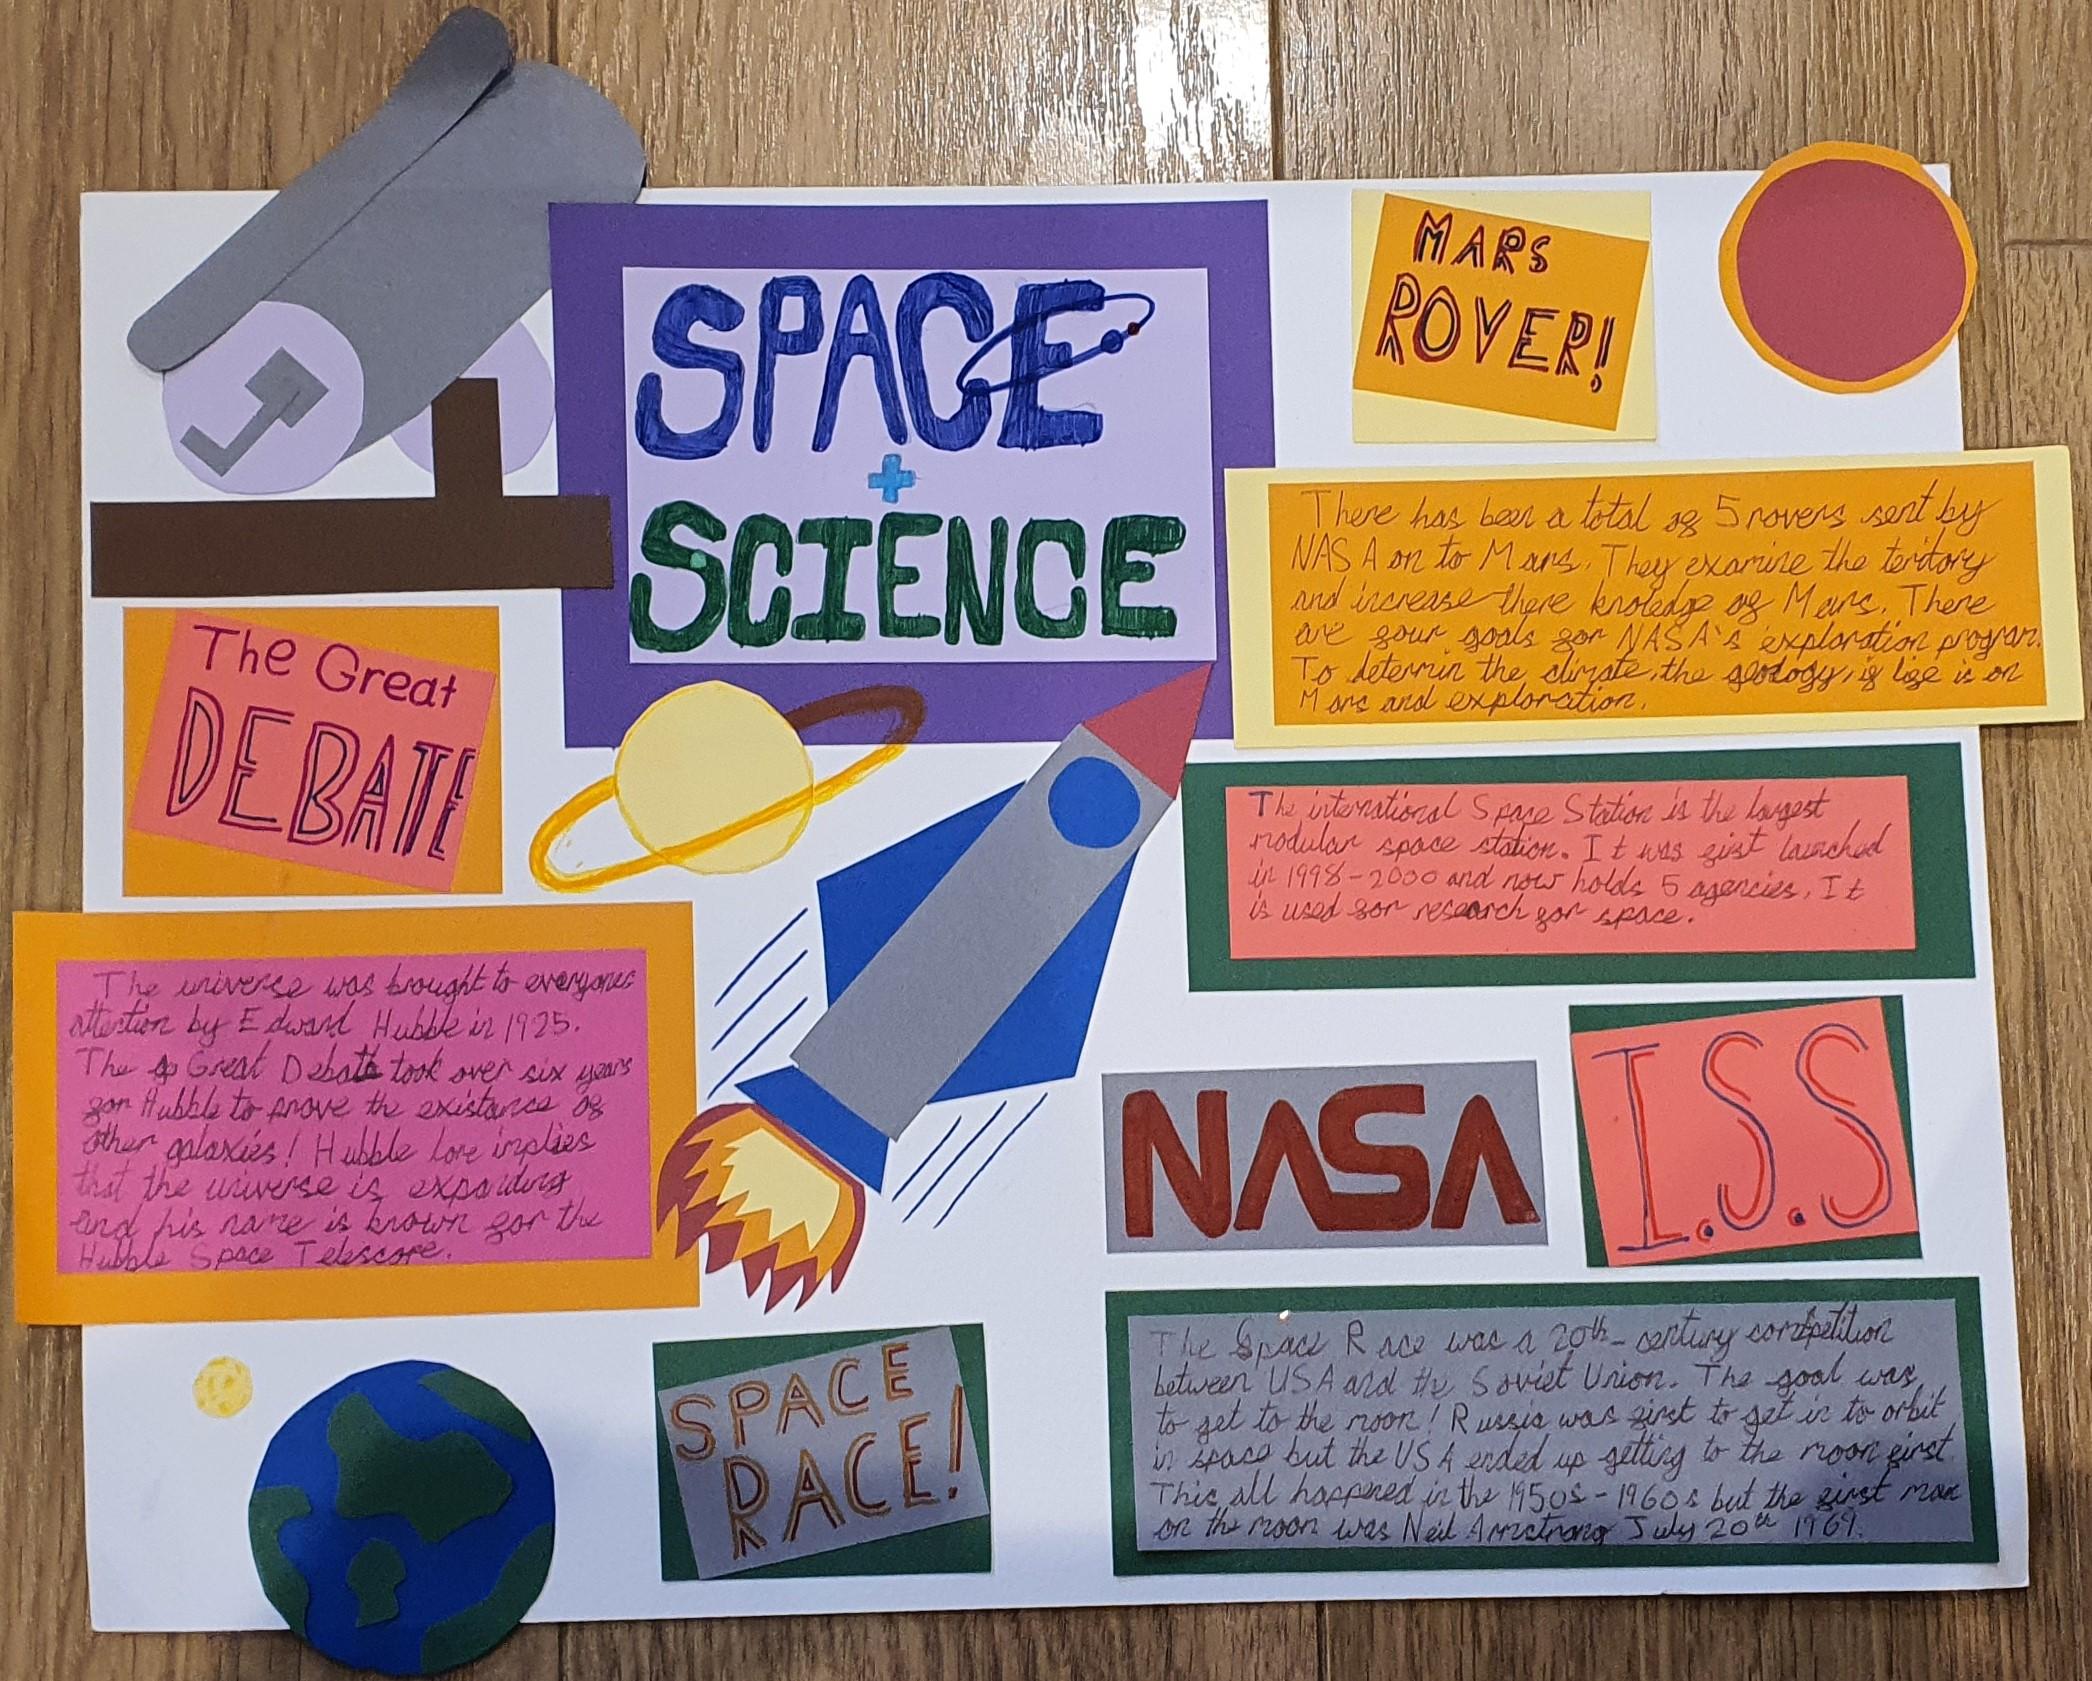 SPACE
+
SCIENCE
MARS
ROVER!
There has been a total of 5 rovers sent by
NASA on to Mars. They examine the teritory
and increase there knoledge of Mars. There
are four goals for NASA's exploration program.
To determin the climate, the geology, if life is on
Mars and exploration.
The Great
DEBATE
The universe was brought to everyones
attention by Edward Hubble in 1925.
The Great Debate took over six years
for Hubble to prove the existance of
other galaxies! Hubble law implies
that the universe is expanding
and his name is known for the
Hubble Space Telescope.
The international Space Station is the largest
modular space station. It was first launched
in 1998-2000 and now holds 5 agencies. It
is used for research for space.
NASA
I.S.S
SPACE
RACE!
The Space Race was a 20th-century competition
between USA and the Soviet Union. The goal was
to get to the moon! Russia was first to get in to orbit
in space but the USA ended up getting to the moon first.
This all happened in the 1950s-1960s but the first man
on the moon was Neil Armstrong July 20th 1969.